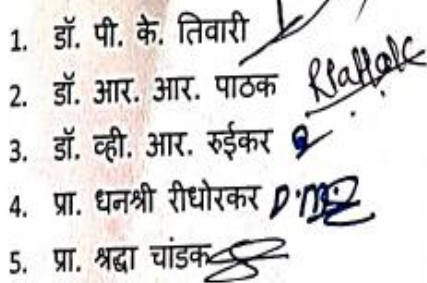 1. डॉ. पी. के. तिवारी
2. डॉ. आर. आर. पाठक
3. डॉ. व्ही. आर. रुईकर
4. प्रा. धनश्री रीधोरकर
5. प्रा. श्रद्धा चांडक